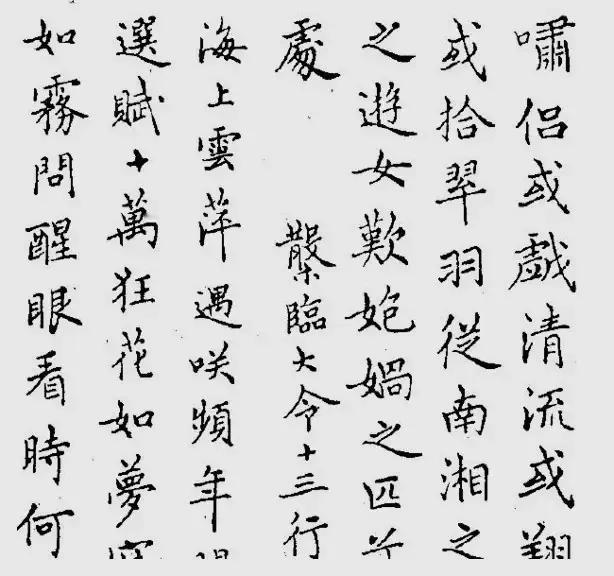 嘯侶或戲清流或翔
或拾翠羽從南湘之
之遊女歎匏媧之匹兮
處
鷖臨大令十三行
海上雲萍遇咲頻年
選賦十萬狂花如夢寐
如霧問醒眼看時何